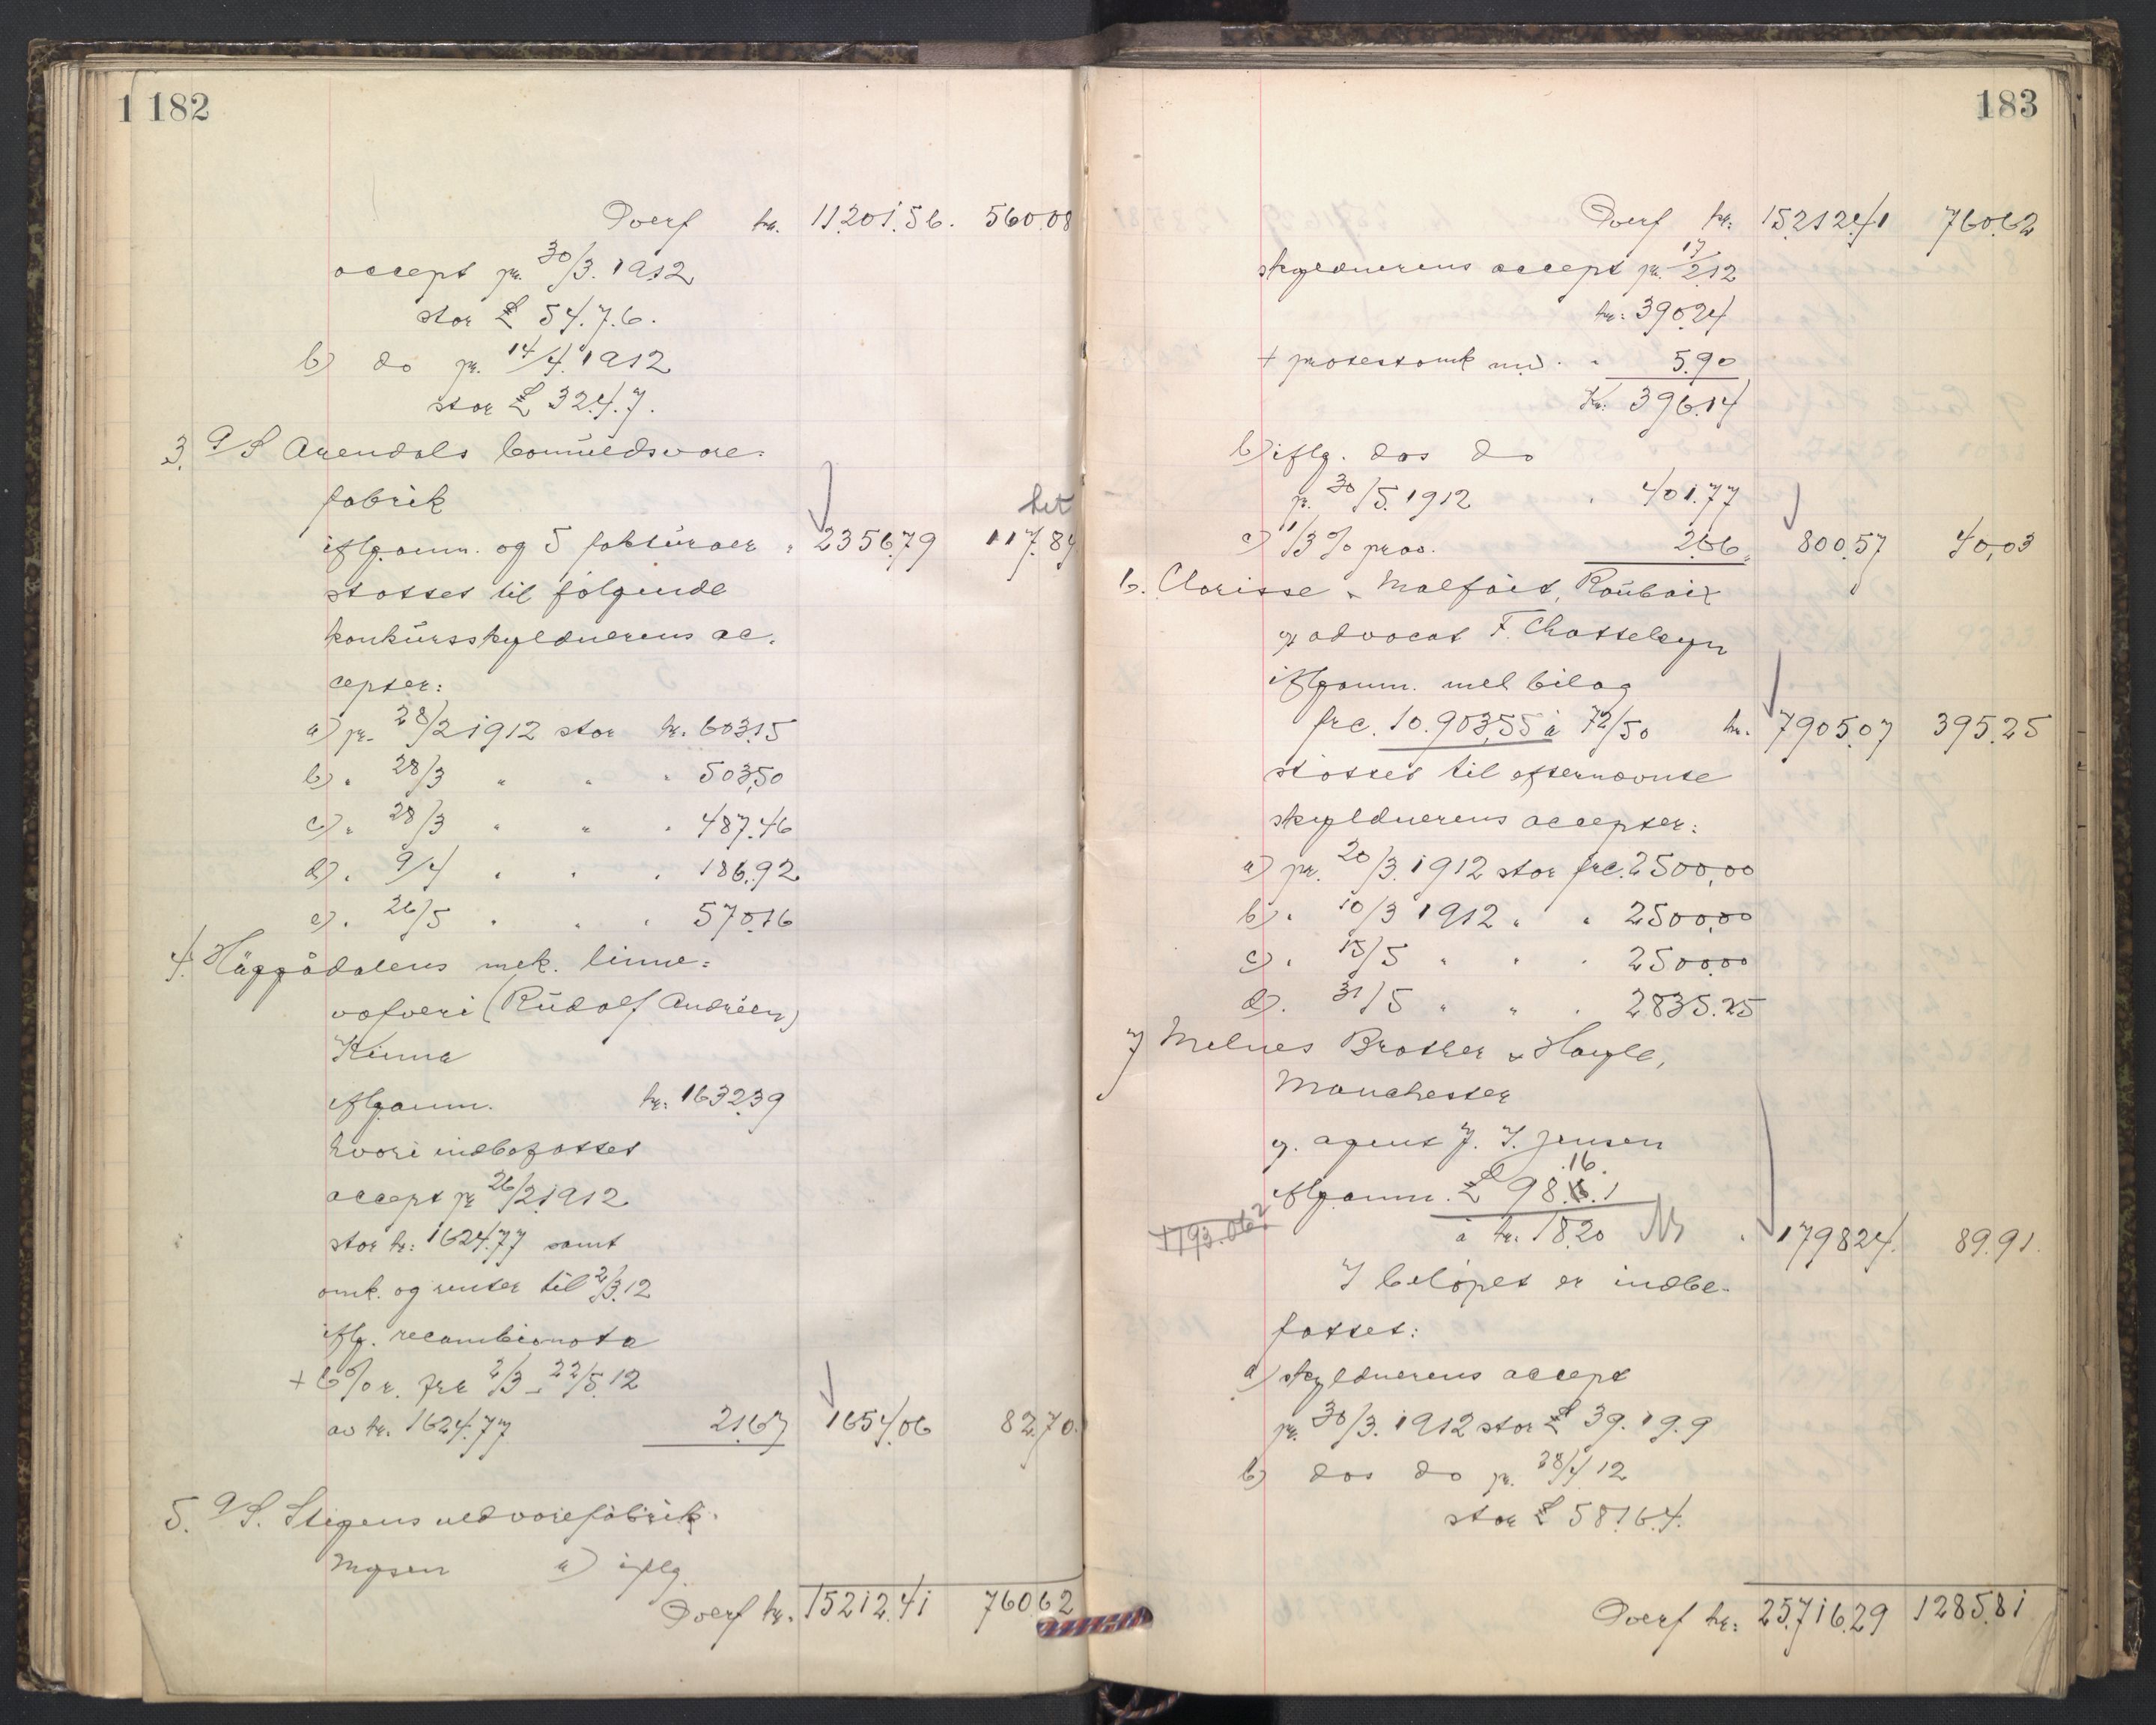 1 182
Overf kr. 11.201.56. 560.08
accept pr. 30/3. 1912
stor £ 54.7.6.
b) do pr. 14/4. 1912
stor £ 32.4.7.
3. A/S Arendals bomuldsvare-
fabrik
iflg. anm. og 5 fakturaer " 2356.79 117.84
støttet til følgende
konkursskyldnerens ac-
cepter:
a) pr. 28/2 1912 stor kr. 603.15
b) " 28/3 " " " 503.50
c) " 28/3 " " " 487.46
d) " 9/4 " " " 186.92
e) " 26/5 " " " 570.16
4. Häggådalens mek. linne-
vafveri (Rudolf Andréen)
Kinna
iflg. anm. kr. 1632.39
hvori indbefattet
accept pr 26/2 1912
stor kr. 1624.77 samt
omk. og renter til 2/3.12
iflg. recambionota
+ 6% r. fra 2/3 - 22/5.12
av kr. 1624.77 21.67 1654.06 82.70
5. A/S. Stigens uldvarefabrik.
Mysen a) iflg.
Overf kr. 15212.41 760.62
183
Overf kr. 15.212.41 760.62
skyldnerens accept pr. 17/2 12
kr. 390.24
+ protestomk m.v. " 5.90
Kr. 396.14
b) iflg. dos do
pr. 30/5. 1912 " 401.77
c) 1/3 % prov. 2.66 " 800.57 40,03
6. Clarisse & Malfait, Roubaix
v/ advocat F. Chatteleyn
iflg. anm. med bilag
frc. 10.903,55 à 72/50 kr. 7905.07 395.25
støttet til efternævnte
skyldnerens accepter:
a) pr. 20/3. 1912 stor frc. 2500,00
b) " 10/3 1912 " " 2500,00
c) " 15/5 " " " 2500,00
d) " 31/5 " " " 2835.25
7 Melnes Brother & Hoyle,
Manchester
v. agent J. J. Jensen
16.
iflg. anm. £ 98.16.1
1793.06?
à kr. 18.20 " 1798.24. 89.91.
I beløpet er indbe-
fattet:
a) skyldnerens accept
pr. 30/3. 1912 stor £ 39.19.9
b) dos do pr. 28/4 12
stor £ 58.16.4.
Overf kr. 25.716.29 1285.81